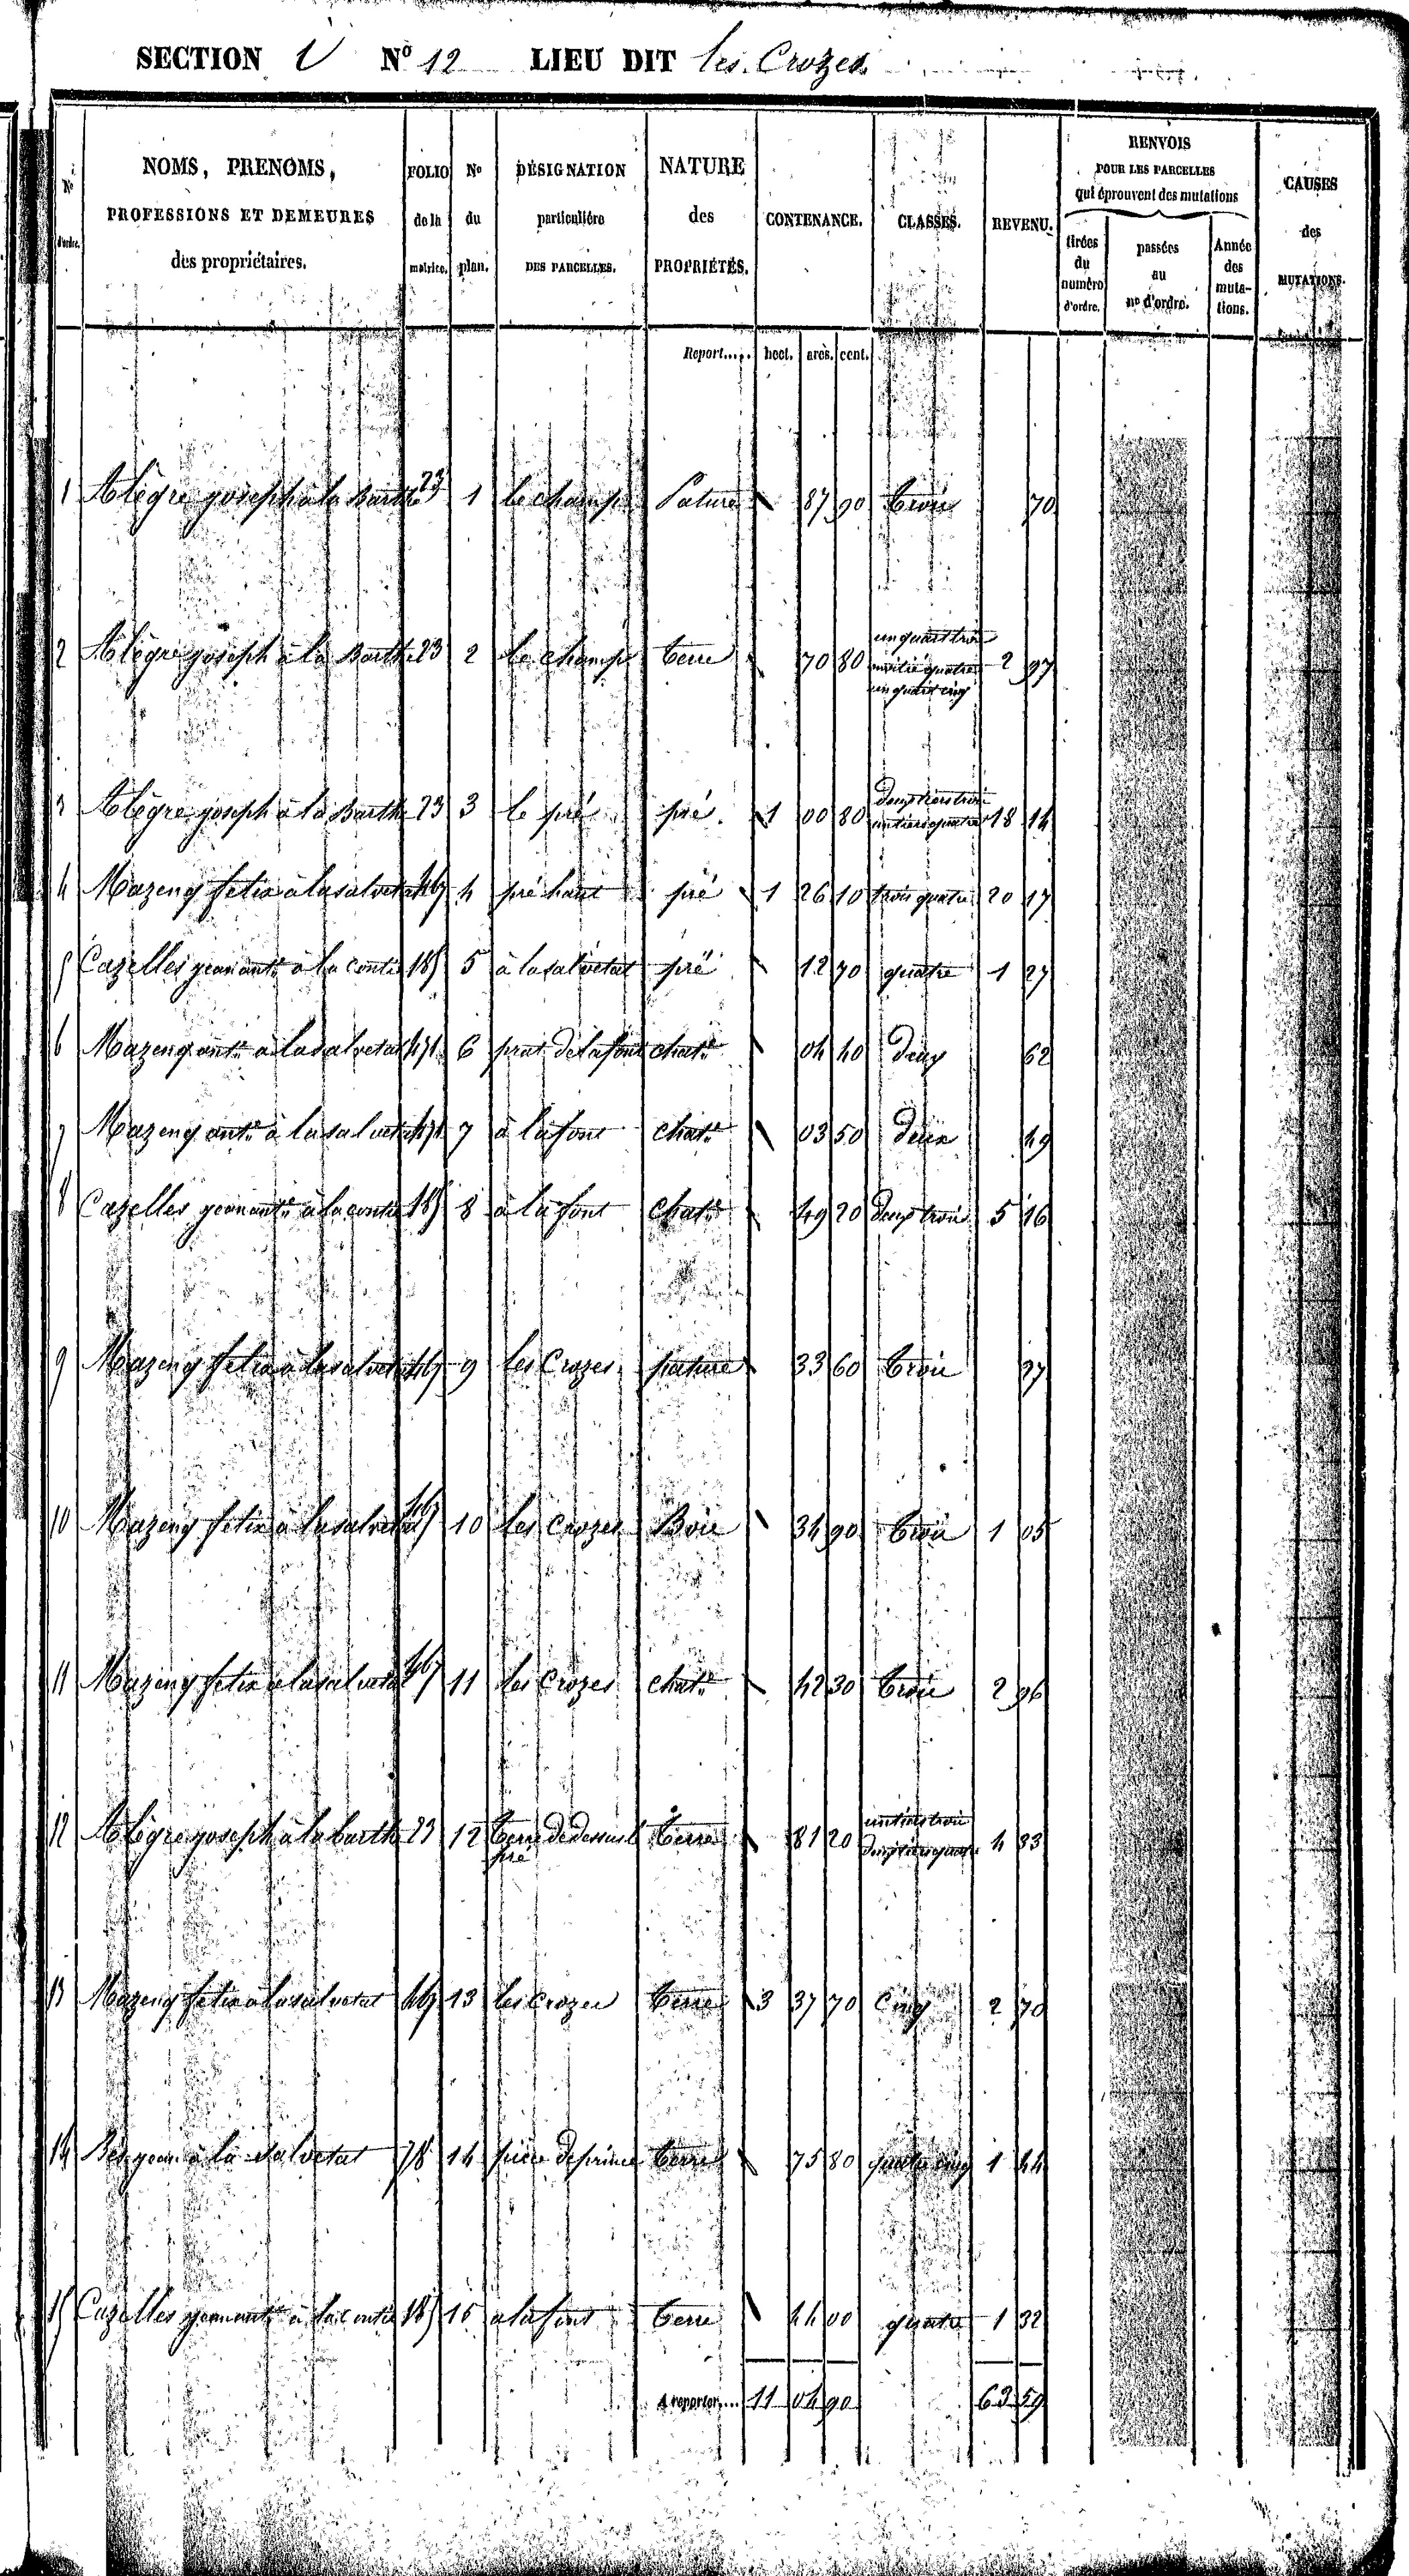 SECTION V N° 12 LIEU DIT les Crozes
N° d'ordre. NOMS, PRENOMS, PROFESSIONS ET DEMEURES des propriétaires. FOLIO de la matrice. N° du plan. DÉSIGNATION particulière DES PARCELLES. NATURE des PROPRIÉTÉS. CONTENANCE. CLASSES. REVENU. RENVOIS POUR LES PARCELLES qui éprouvent des mutations tirées du numéro d'ordre. passées au n° d'ordre. Année des mutations. CAUSES des MUTATIONS.
Report..... hect. ares. cent.
1 Alègre joseph à la Barthe 23 1 le champ Pature 87 90 trois 70
2 Alègre joseph à la Barthe 23 2 le champ terre 70 80 un quart trois moitié quatre un quart cinq 2 97
3 Alègre joseph à la Barthe 23 3 le pré pré 1 00 80 deux tiers trois un tiers quatre 18 14
4 Mazenq felix à la salvetat 467 4 pré haut pré 1 26 10 trois quatre 20 17
5 Cazelles jean ant.e à la contie 185 5 à la salvetat pré 12 70 quatre 1 27
6 Mazenq ant.e à la salvetat 471 6 prat de lafont chat.e 04 40 deux 62
7 Mazenq ant.e à la salvetat 471 7 à lafont chat.e 03 50 deux 49
8 Cazelles jean ant.e à la contie 185 8 à lafont chat.e 49 20 deux trois 5 16
9 Mazenq felix à la salvetat 467 9 les Crozes pature 33 60 trois 27
10 Mazenq felix à la salvetat 467 10 les Crozes Bois 34 90 trois 1 05
11 Mazenq felix à la salvetat 467 11 les Crozes chat.e 42 30 trois 2 96
12 Alègre joseph à la barthe 23 12 terre de dessus le pré terre 81 20 un tiers trois deux tiers quatre 4 33
13 Mazenq felix à la salvetat 467 13 les Crozes terre 3 37 70 cinq 2 70
14 jean à la salvetat 78 14 terre 75 80 quatre cinq 1 44
15 Cazelles jean ant.e à la contie 185 15 à lafont terre 44 00 quatre 1 32
A reporter.... 11 04 90 63 59